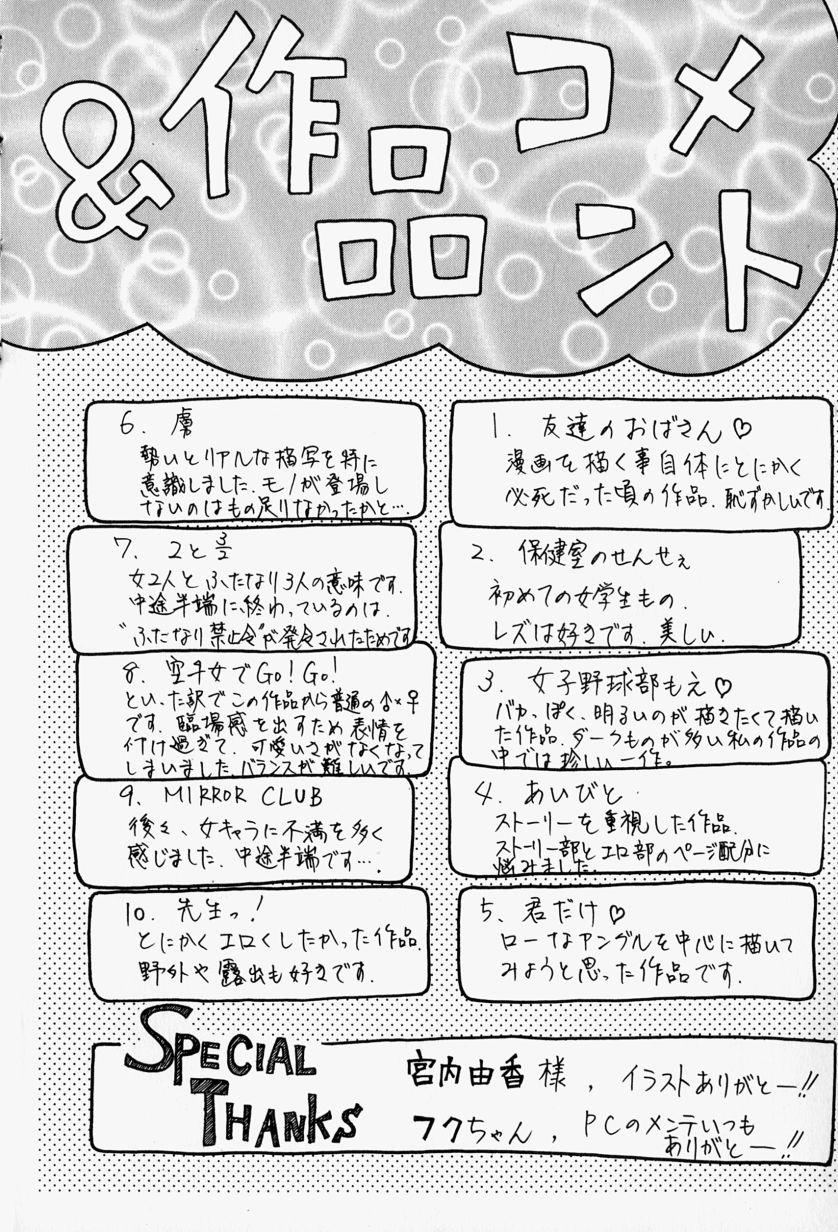 &作品コメント
1. 友達のおばさん♡
漫画を描く事自体にとにかく
必死だった頃の作品。恥ずかしいです
2. 保健室のせんせぇ
初めての女学生もの。
レズは好きです。美しい。
3. 女子野球部もえ♡
バカっぽく、明るいのが描きたくて描い
た作品。ダークものが多い私の作品の
中では珍しい一作。
4. あいびと
ストーリーを重視した作品。
ストーリー部とエロ部のページ配分に
悩みました。
5. 君だけ♡
ローなアングルを中心に描いて
みようと思った作品です。
6. 虜
勢いとリアルな描写を特に
意識しました。モノが登場し
ないのはもの足りなかったかと…。
7. 2と3/2
女2人とふたなり3人の意味です。
中途半端に、終わっているのは、
“ふたなり禁止令”が発令されたためです
8. 空手女でGo!Go!
といった訳でこの作品から普通の♂×♀
です。臨場感を出すため表情を
付け過ぎて、可愛いさがなくなって
しまいました。バランスが難しいです。
9. MIRROR CLUB
後々、女キャラに不満を多く
感じました。中途半端です…。
10. 先生っ!
とにかくエロくしたかった作品。
野外や露出も好きです。
SPECIAL THANKS
宮内由香様, イラストありがとー!!
フクちゃん, PCのメンテいつも
ありがとー!!